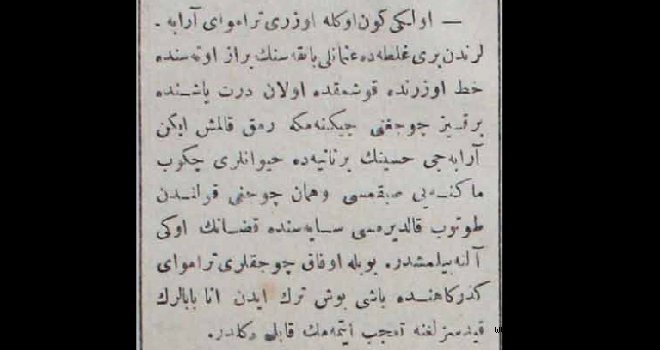 — اولكی كون اوكله اوزری تراموای آرابه -
لرندن بری غلطه ده عثمانلی بانقه سنك براز اوته سنده
خط اوزرنده قوشمقده اولان درت یاشنده
بر قیز چوجغی چیكنه مكه رمق قالمش ایكن
آرابه جی حسینك بر ثانیه ده حیوانلری چكوب
ماكنه یی صیقمسی وهمان چوجغی قولندن
طوتوب قالدیرمسی سایه سنده قضانك اوكی
آلنه بیلمشدر. بویله اوفاق چوجقلری تراموای
كذركاهنده باشی بوش ترك ایدن انا بابالرك
قیدسزلغنه تعجب ایتمه مك قابل دكلدر.